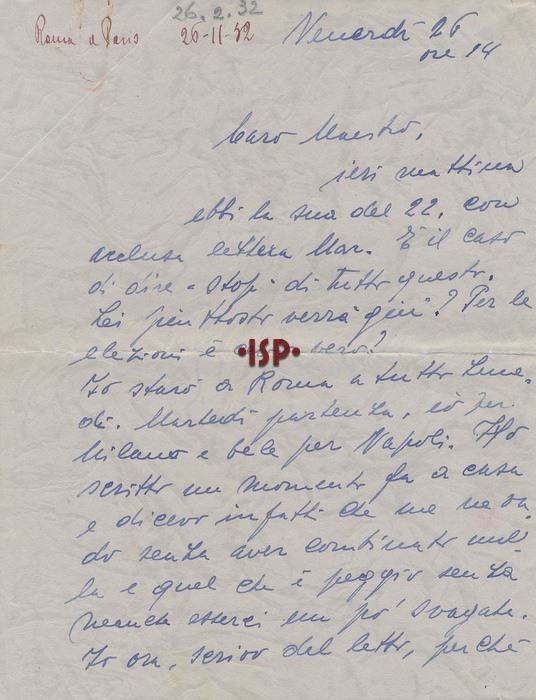 26.2.32
Roma a Paris 26-11-32 Venerdì 26
ore 14
Caro Maestro,
ieri mattina
ebbi la sua del 22, con
acclusa lettera Mar. È il caso
di dire "stop" di tutto questo.
Lei piuttosto verrà giù? Per le
elezioni è vero?
·ISP·
Io starò a Roma a tutto Lune-
dì. Martedì partenza, io per
Milano e bele per Napoli. Ho
scritto un momento fa a casa
e dicevo infatti che me ne va-
do senza aver combinato nul-
la e quel ch è peggio senza
neanche esserci un pò svagata.
Io ora, scrivo dal letto, perché